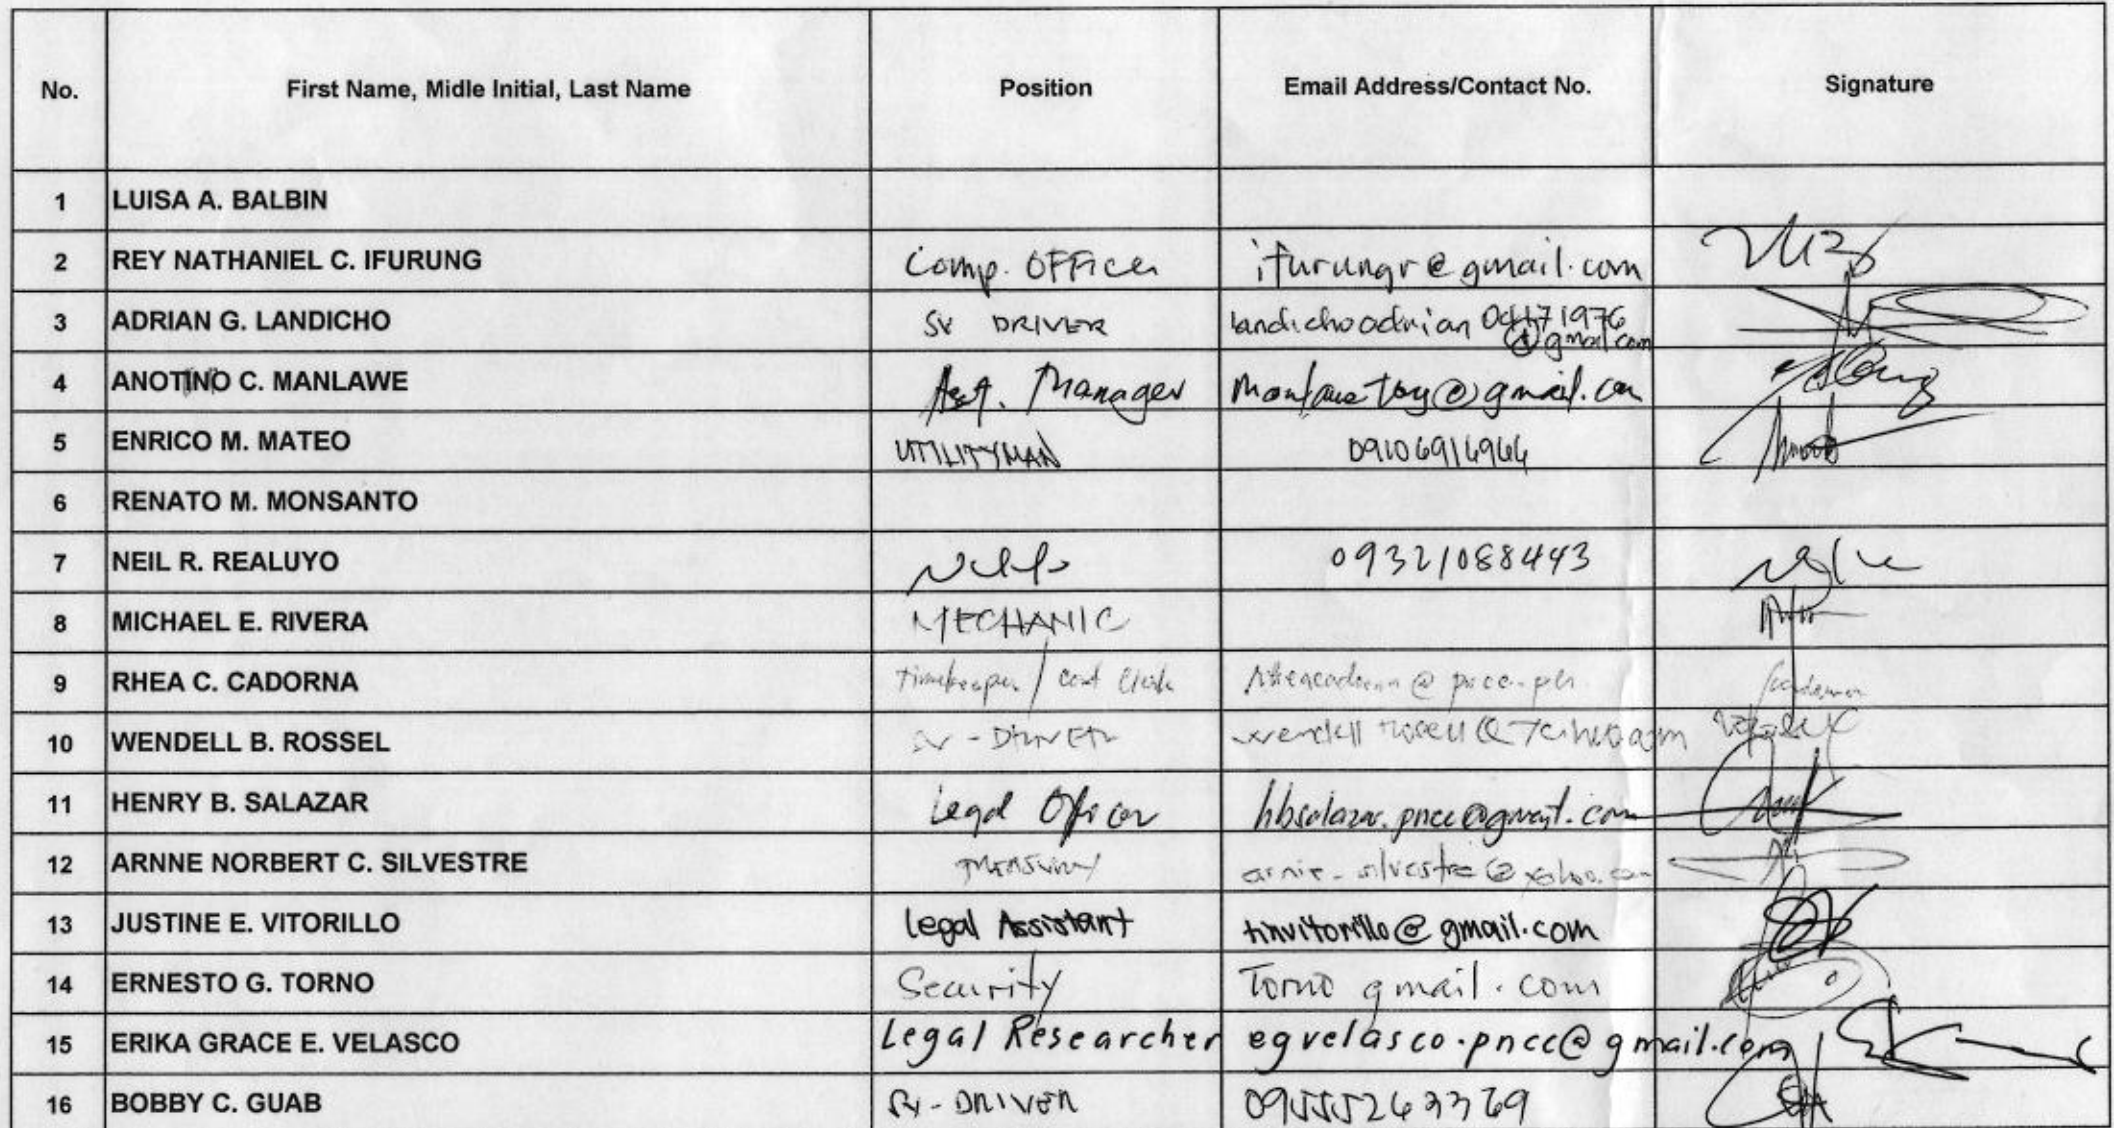 No. First Name, Midle Initial, Last Name Position Email Address/Contact No. Signature
1 LUISA A. BALBIN
2 REY NATHANIEL C. IFURUNG Comp. OFFicer ifurungr@gmail.com
3 ADRIAN G. LANDICHO SV DRIVER landichoadrian 04171976
@gmail.com
4 ANOTINO C. MANLAWE Asst. Manager
5 ENRICO M. MATEO UTILITYMAN
6 RENATO M. MONSANTO
7 NEIL R. REALUYO 09321088443
8 MICHAEL E. RIVERA MECHANIC
9 RHEA C. CADORNA timekeeper / cost clerk
10 WENDELL B. ROSSEL SV - DRIVER
11 HENRY B. SALAZAR Legal Officer hbsalazar.pncc@gmail.com
12 ARNNE NORBERT C. SILVESTRE arnie_silvestre@yahoo.com
13 JUSTINE E. VITORILLO Legal Assistant tinvitorillo@gmail.com
14 ERNESTO G. TORNO Security Torno gmail.com
15 ERIKA GRACE E. VELASCO Legal Researcher egvelasco.pncc@gmail.com
16 BOBBY C. GUAB SV - DRIVER